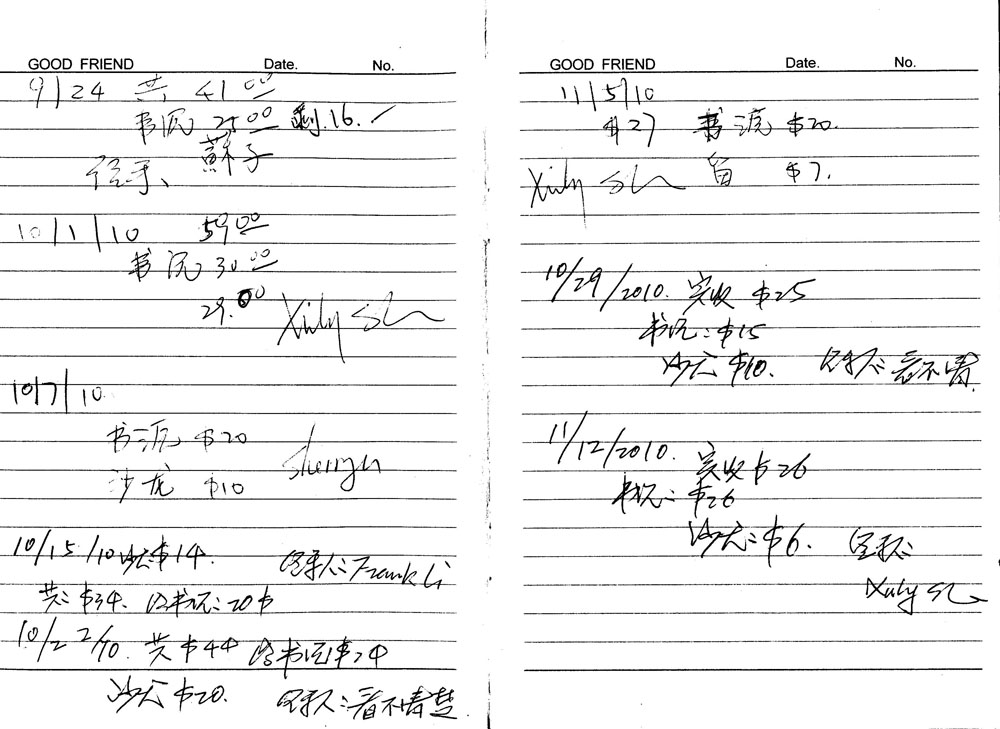 GOOD FRIEND Date. No.
9/24 共 41 00
书院 25 00 剩.16.
经手、 蘇子
10/1/10 59 00
书院 30 00
29.00
10/7/10
书院 $20
沙龙 $10
10/15/10 沙龙:$14.
经手人: Frank Li
共:$34. 给书院:20$
10/22/10. 共$44 给书院$24
沙龙$20. 经手人:看不清楚
GOOD FRIEND Date. No.
11/5/10
$27 书院 $20.
留 $7.
10/29/2010. 实收 $25
书院:$15
沙龙 $10. 经手人:看不清
11/12/2010. 实收$26
书院:$26
沙龙:$6. 经手人: